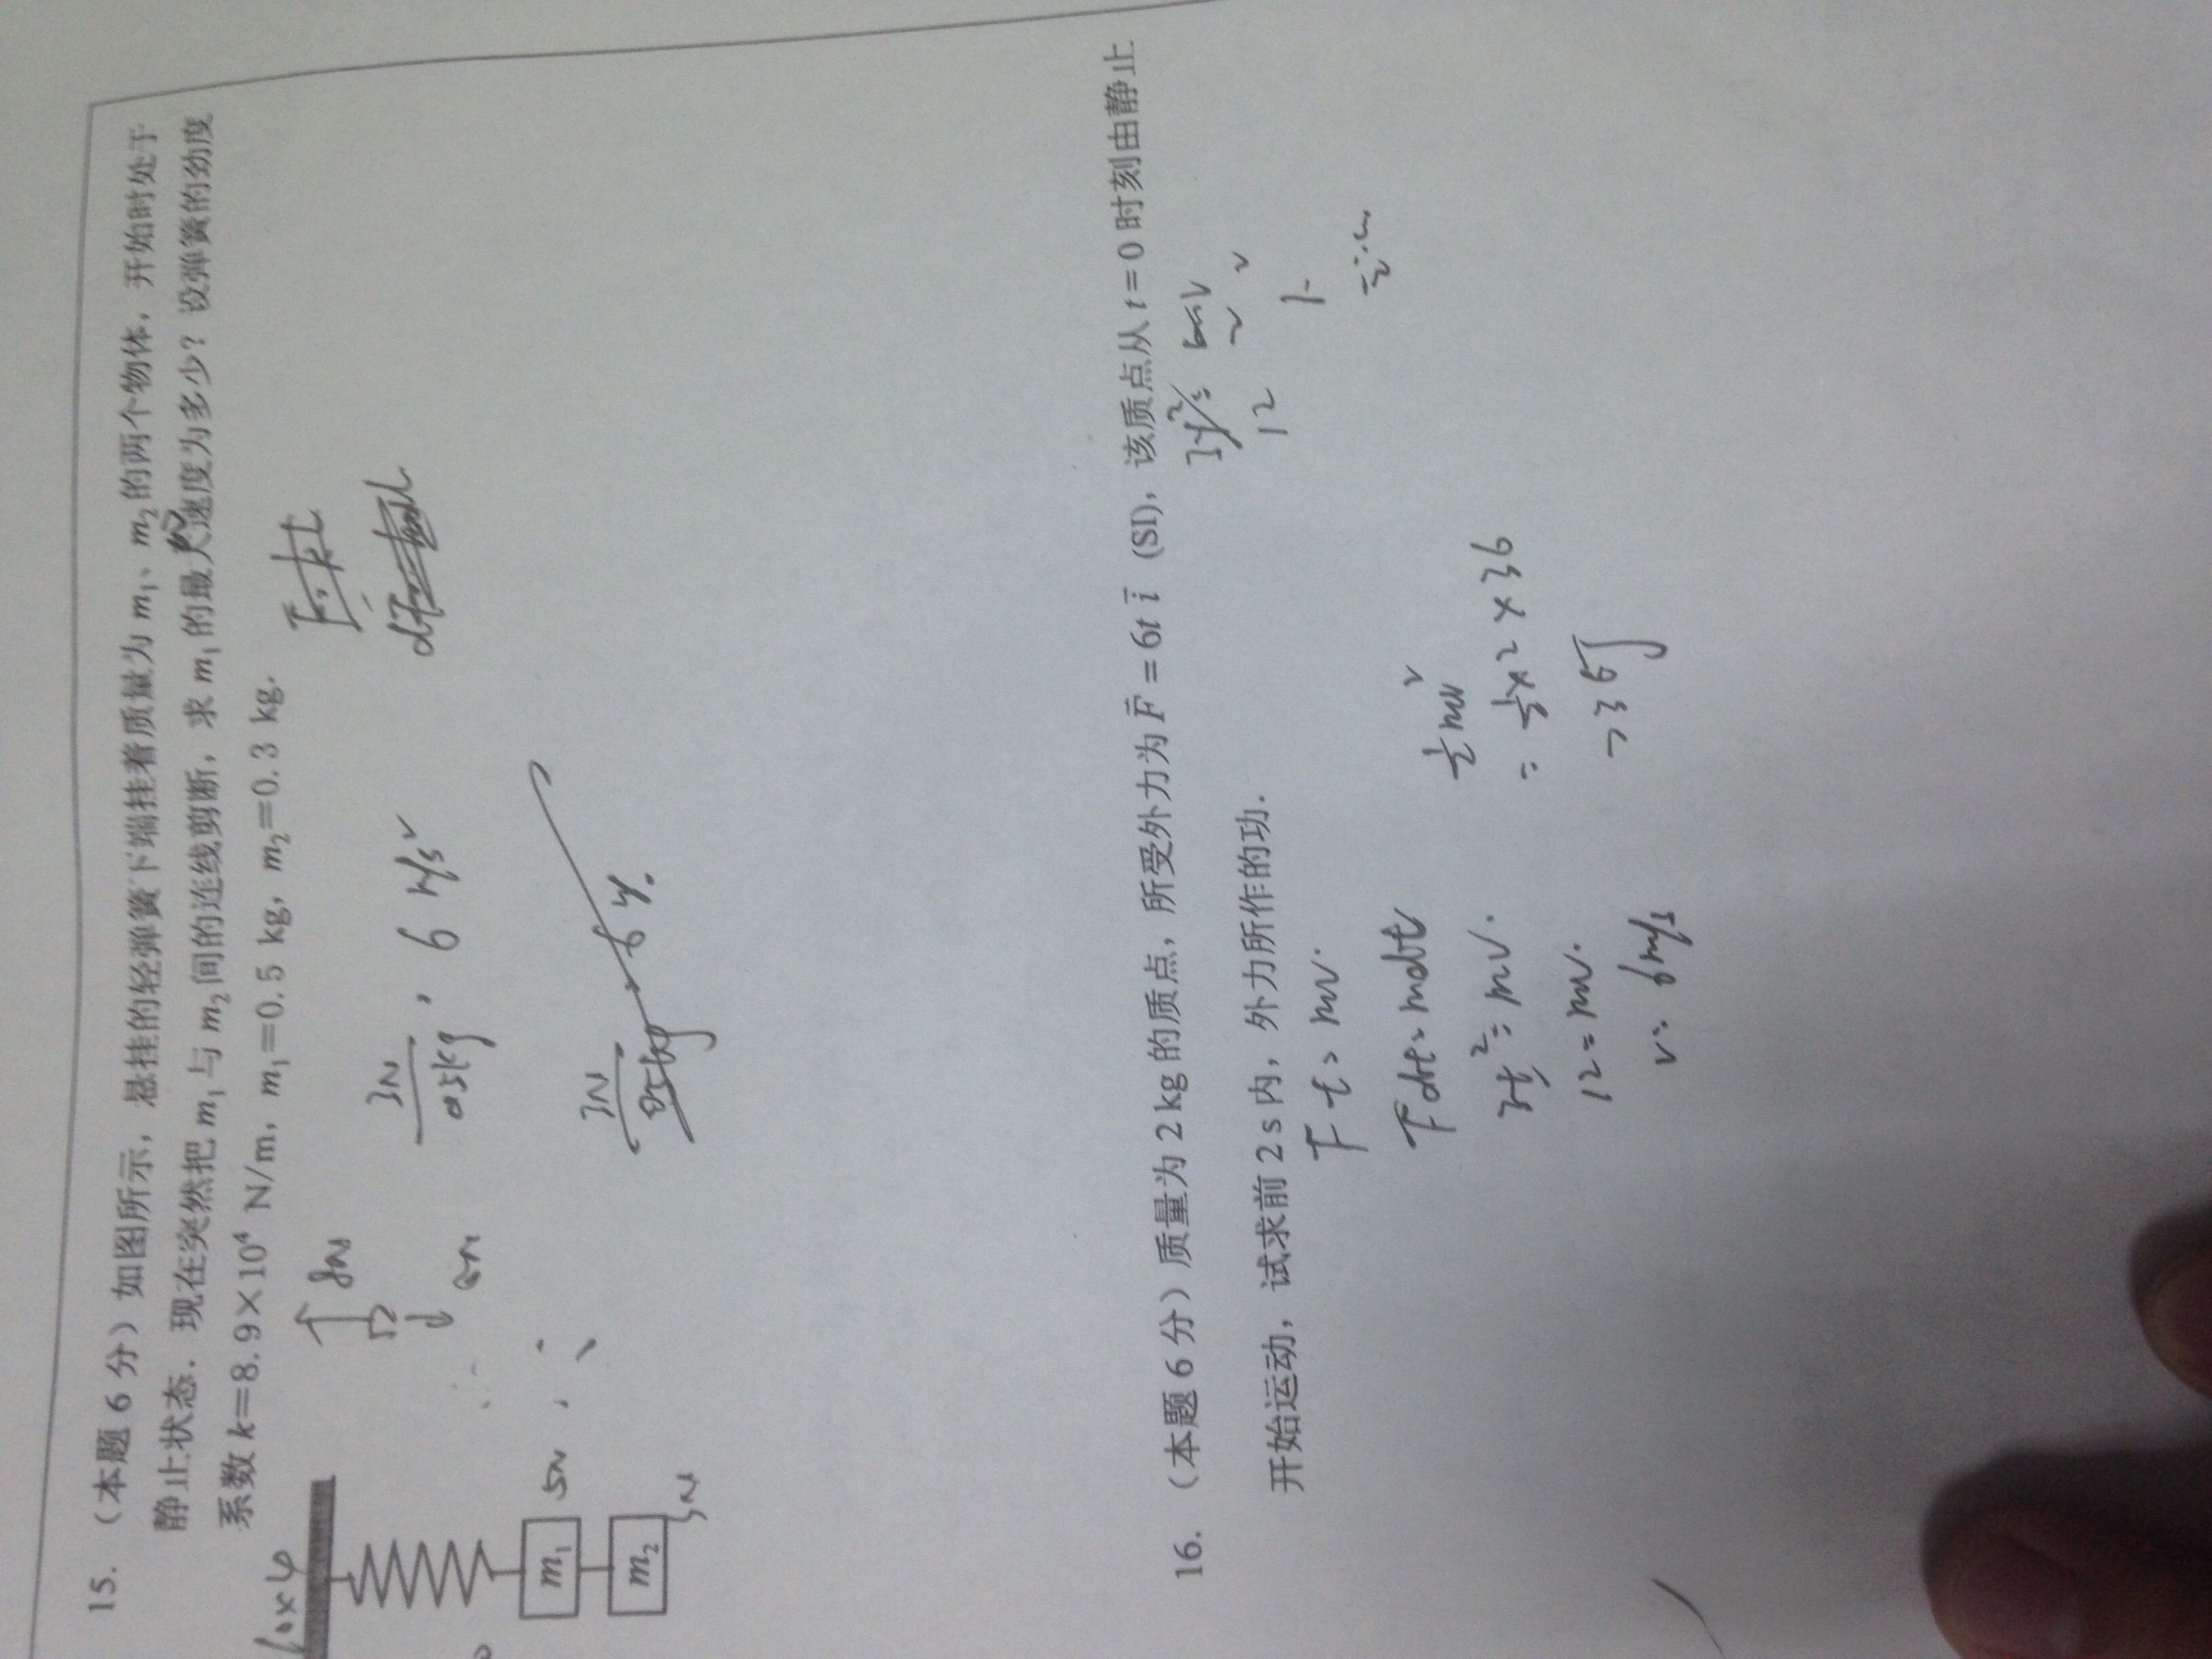 15. （本题 6 分）如图所示，悬挂的轻弹簧下端挂着质量为 m₁、m₂的两个物体，开始时处于
静止状态．现在突然把 m₁ 与 m₂ 间的连线剪断，求 m₁ 的最大速度为多少？设弹簧的劲度
系数 k＝8.9×10⁴ N/m，m₁＝0.5 kg，m₂＝0.3 kg．
10×4
8N
3N
0.5kg
6 m/s²
m₁
5N
m₂
3N
3N
0.5kg
16. （本题 6 分）质量为 2 kg 的质点，所受外力为 F̄ = 6t ī (SI)，该质点从 t = 0 时刻由静止
开始运动，试求前 2 s 内，外力所作的功．
12
Ft = mv.
Fdt = mdt
3t² = mv.
12 = mv.
v = 6m/s
½mv²
= ½×2×36
=36J